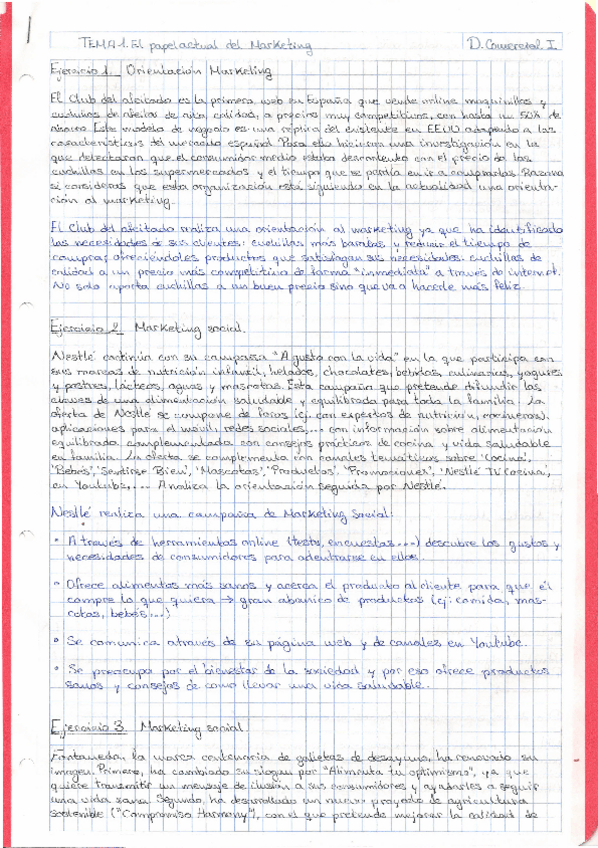 TEMA 1. El papel actual del Marketing D. Comercial I
Ejercicio 1 Orientación Marketing
El Club del afeitado es la primera web en España que vende online maquinillas y
cuchillas de afeitar de alta calidad, a precios muy competitivos, con hasta un 50% de
ahorro. Este modelo de negocio es una réplica del existente en EEUU adaptado a las
características del mercado español. Para ello hicieron una investigación en la
que detectaron que el consumidor medio estaba descontento con el precio de las
cuchillas en los supermercados y el tiempo que se perdía en ir a comprarlas. Razona
si consideras que esta organización está siguiendo en la actualidad una orienta-
ción al marketing.
El Club del afeitado realiza una orientación al marketing ya que ha identificado
las necesidades de sus clientes: cuchillas más baratas y reducir el tiempo de
compra; ofreciéndoles productos que satisfagan sus necesidades: cuchillas de
calidad a un precio más competitivo de forma "inmediata" a través de internet.
No solo aporta cuchillas a un buen precio sino que va a hacerle más feliz.
Ejercicio 2 Marketing social.
Nestlé continúa con su campaña "A gusto con la vida" en la que participa con
sus marcas de nutrición infantil, helados, chocolates, bebidas, culinarias, yogures
y postres, lácteos, aguas y mascotas. Esta campaña que pretende difundir las
claves de una alimentación saludable y equilibrada para toda la familia. La
oferta de Nestlé se compone de foros (ej: con expertos de nutrición, cocineros),
aplicaciones para el móvil, redes sociales,... con información sobre alimentación
equilibrada, complementada con consejos prácticos de cocina y vida saludable
en familia. La oferta se complementa con canales temáticos sobre 'Cocina',
'Bebés', 'Sentirse Bien', 'Mascotas', 'Productos', 'Promociones', 'Nestlé TV Cocina',
en Youtube,... Analiza la orientación seguida por Nestlé.
Nestlé realiza una campaña de Marketing Social:
• A través de herramientas online (tests, encuestas...) descubre los gustos y
necesidades de consumidores para adentrarse en ellos.
• Ofrece alimentos más sanos y acerca el producto al cliente para que él
compre lo que quiera → gran abanico de productos (ej: comida, mas-
cotas, bebés...)
• Se comunica através de su página web y de canales en Youtube.
• Se preocupa por el bienestar de la sociedad y por eso ofrece productos
sanos y consejos de como llevar una vida saludable.
Ejercicio 3 Marketing social
Fontaneda, la marca centenaria de galletas de desayuno, ha renovado su
imagen. Primero, ha cambiado su slogan por "Alimenta tu optimismo", ya que
quiere transmitir un mensaje de ilusión a sus consumidores y ayudarles a seguir
una vida sana. Segundo, ha desarrollado un nuevo proyecto de agricultura
sostenible ("Compromiso Harmony"), con el que pretende mejorar la calidad de